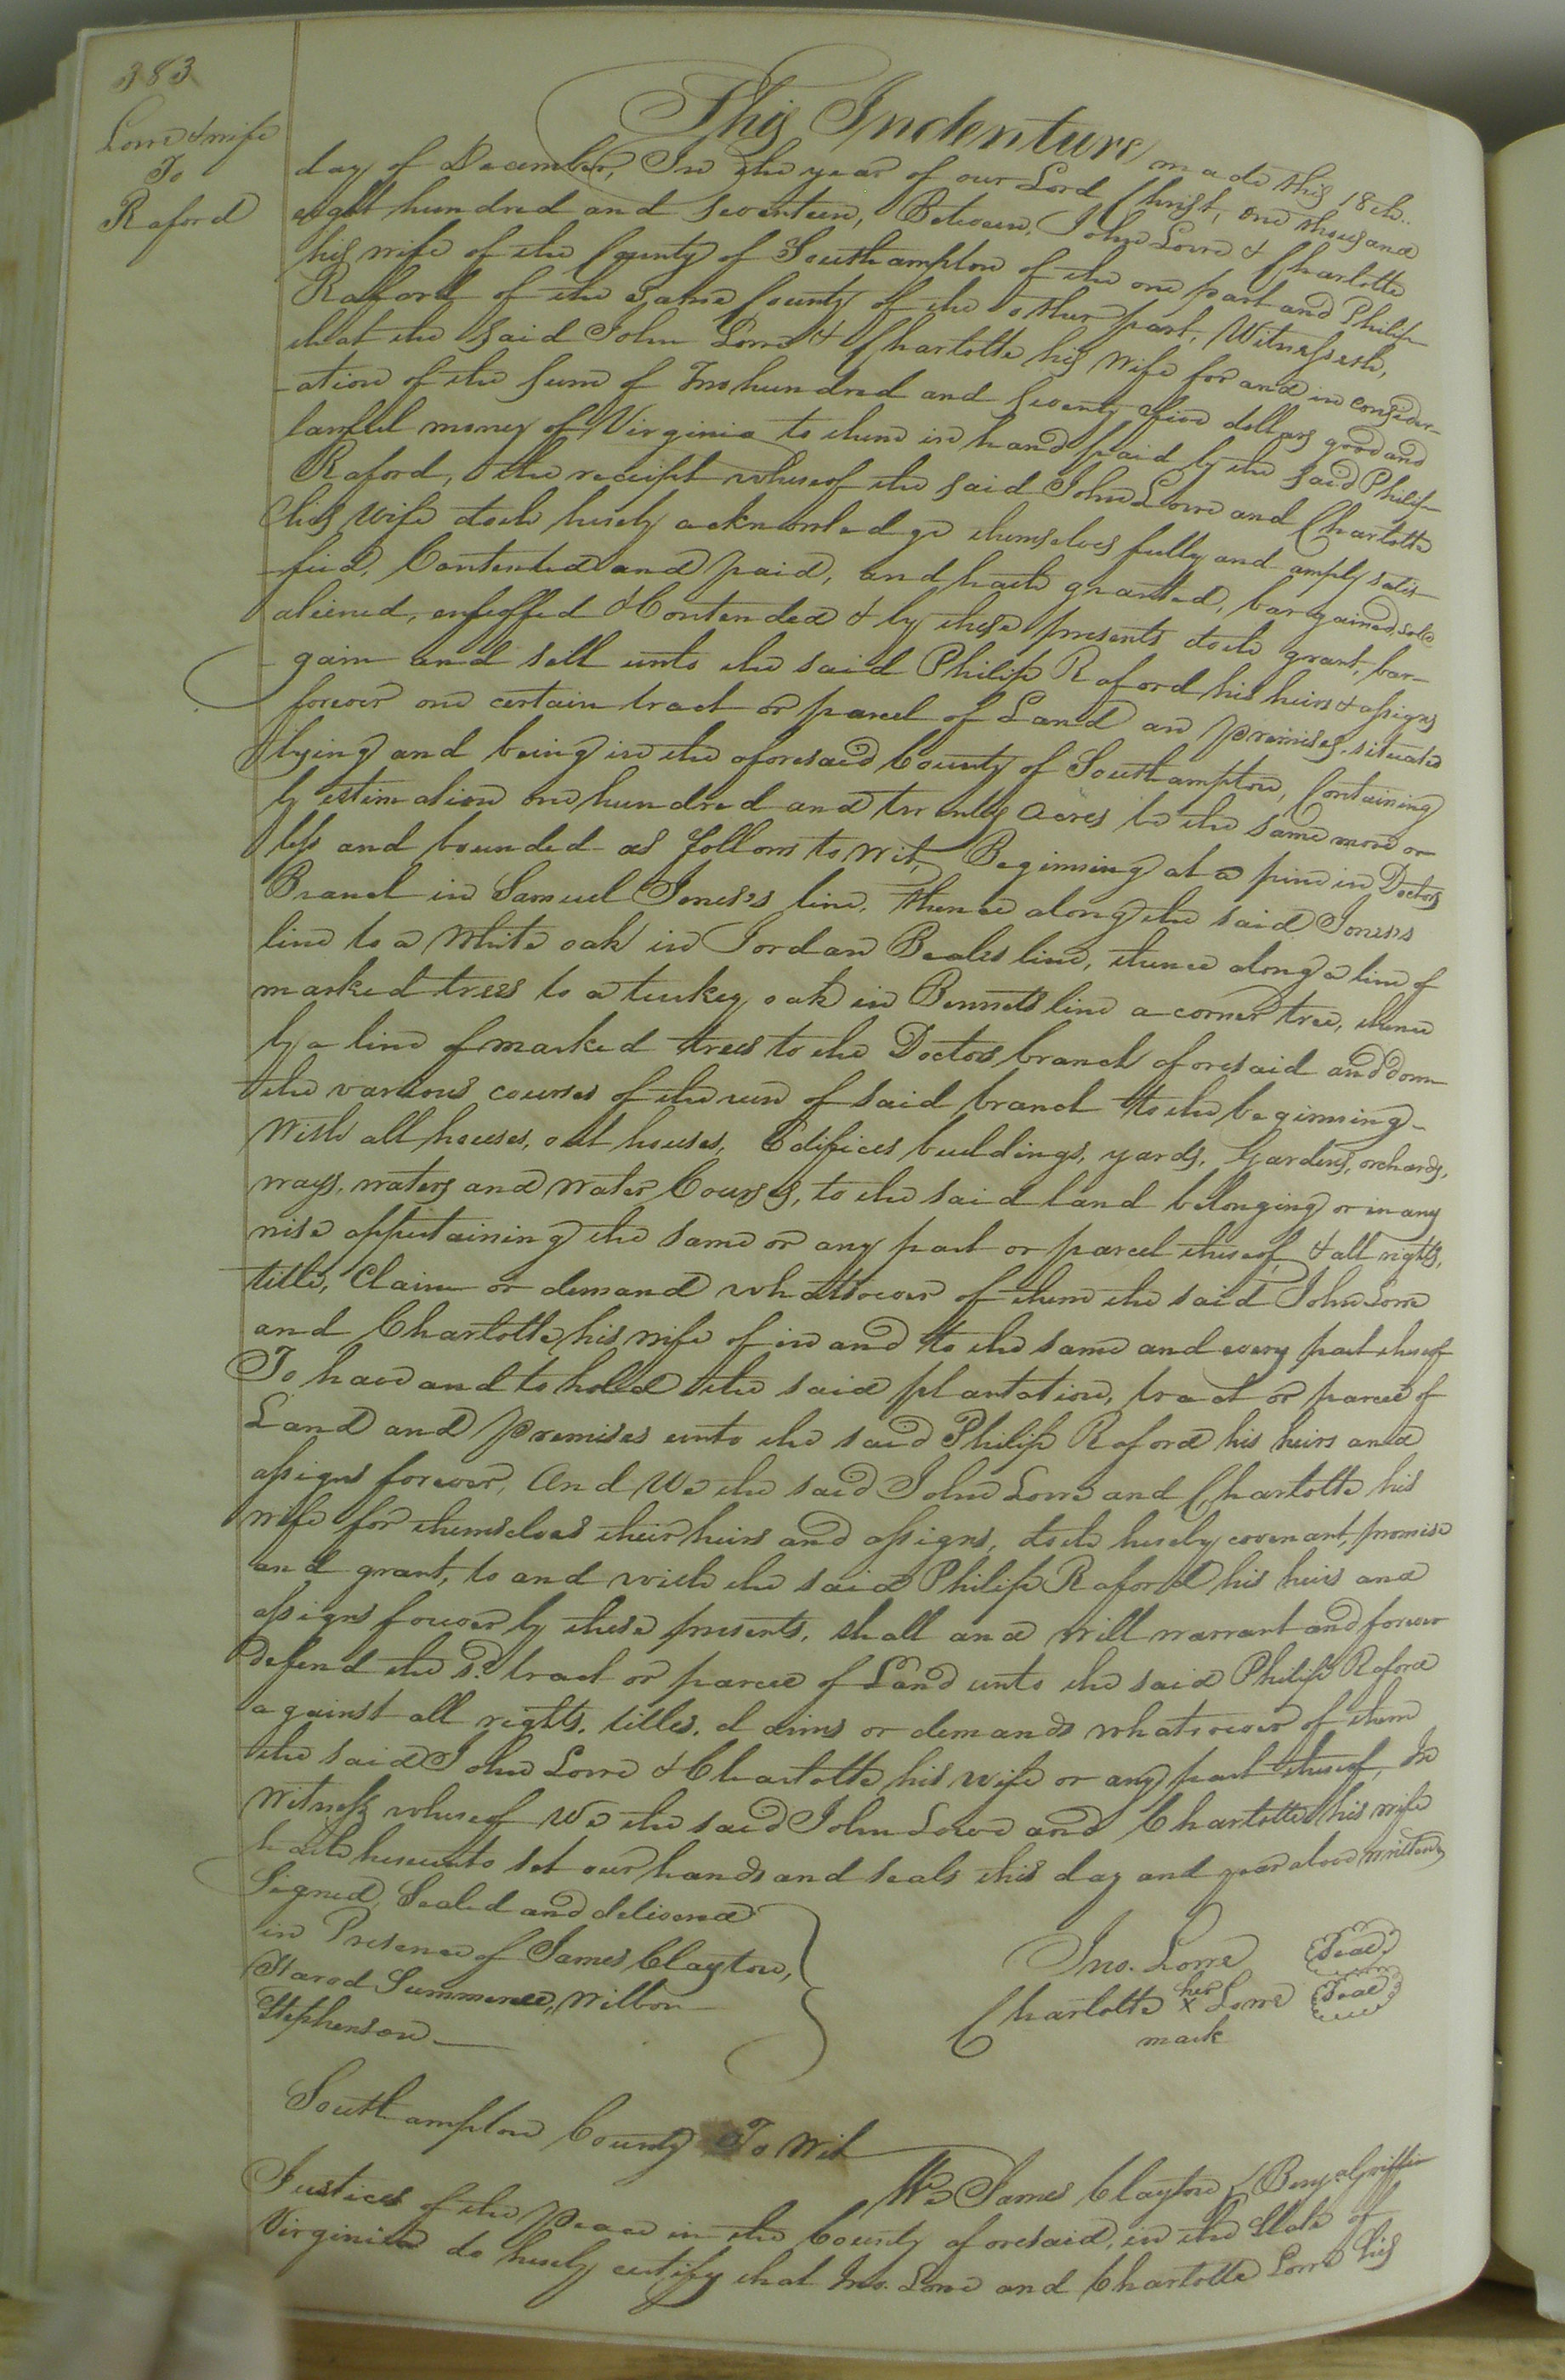 383
Lowe & wife
To
Raford
This Indenture made this 18th..
day of December, In the year of our Lord Christ, one thousand
eight hundred and seventeen, Between, John Lowe & Charlotte
his wife of the County of Southampton of the one part and Philip
Raford of the same County of the other part, Witnesseth,
that the said John Lowe & Charlotte his wife for and in consider-
-ation of the sum of Two hundred and seventy five dollars good and
lawful money of Virginia to them in hand paid by the said Philip
Raford, the receipt whereof the said John Lowe and Charlotte
his wife doth hereby acknowledge themselves fully and amply satis-
-fied, Contented and paid, and hath granted, bargained, sold
aliened, enfeoffed & Contended & by these presents doth grant, bar-
-gain and sell unto the said Philip Raford his heirs & assigns
forever one certain tract or parcel of Land an premises, situated
lying and being in the aforesaid County of Southampton, Containing
by estimation one hundred and twenty acres be the same more or
less and bounded as follows to wit, Beginning at a pine in Doctors
Branch in Samuel Jones's line, thence along the said Jones's
line to a white oak in Jordan Beales line, thence along a line of
marked trees to a turkey oak in Bennets line a corner tree, thence
by a line of marked trees to the Doctors branch aforesaid and down
the various courses of the run of said branch to the beginning-
With all houses, out houses, Edifices buildings, yards, Gardens, orchards,
ways, waters and water Courses, to the said land belonging or in any
wise appertaining the same or any part or parcel thereof, & all rights,
title, Claim or demand whatsoever of them the said John Lowe
and Charlotte his wife of in and to the same and every part thereof
To have and to hold the said plantation, tract or parcel of
Land and premises unto the said Philip Raford his heirs and
assigns forever, And We the said John Lowe and Charlotte his
wife for themselves their heirs and assigns, doth hereby covenant, promise
and grant, to and with the said Philip Raford his heirs and
assigns forever by these presents, shall and will warrant and forever
defend the sd. tract or parcel of Land unto the said Philip Raford
against all rights, titles, claims or demands whatsoever of them
the said John Lowe & Charlotte his wife or any part thereof, In
Witness whereof We the said John Lowe and Charlotte his wife
hath hereunto set our hands and seals this day and year above written
Signed, Sealed and delivered
in Presence of James Clayton,
Stephenson
Jno. Lowe Seal
Charlotte her x Lowe Seal
mark
Southampton County To Wit
We James Clayton & Benja Griffin
Justices of the peace in the County aforesaid, in the State of
Virginia do hereby certify that Jno. Lowe and Charlotte Lowe his